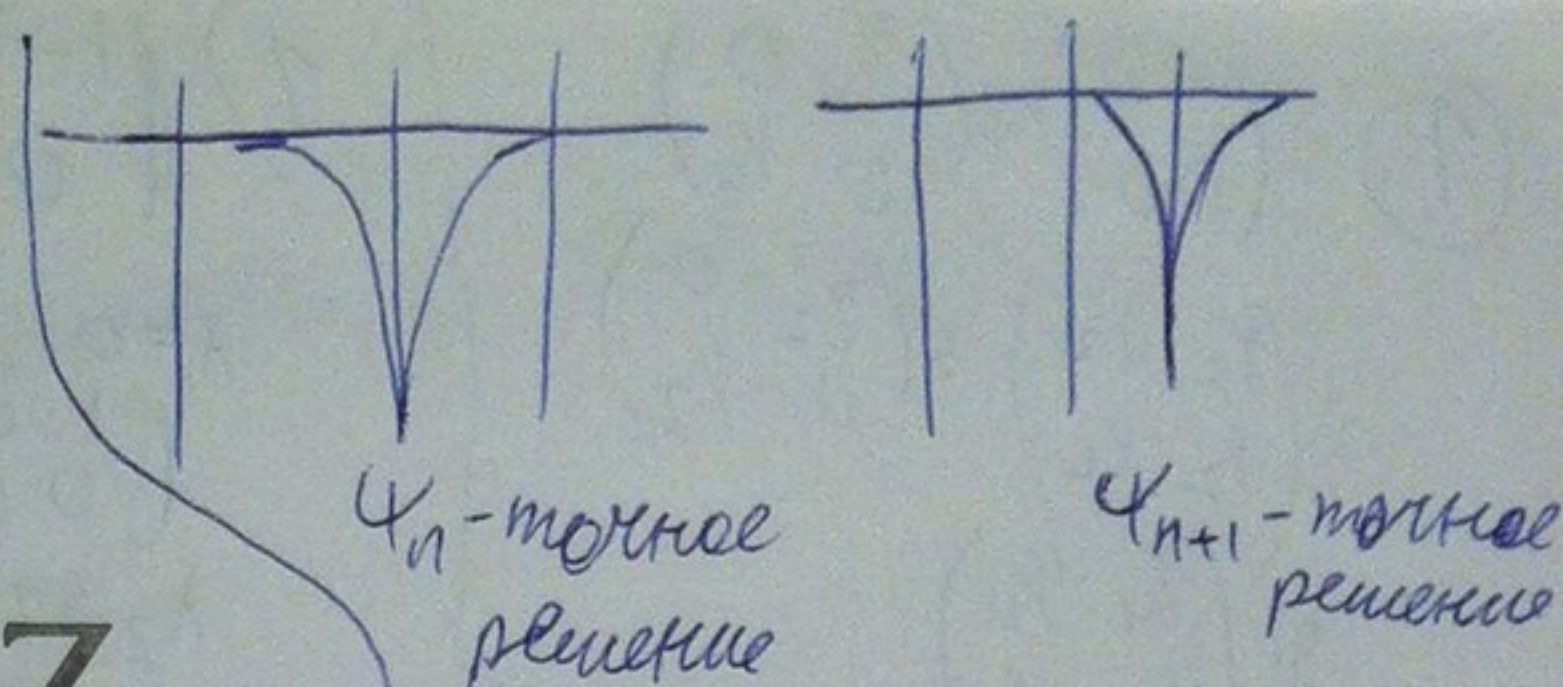 Ψn - точное
решение
Ψn+1 - точное
решение
7